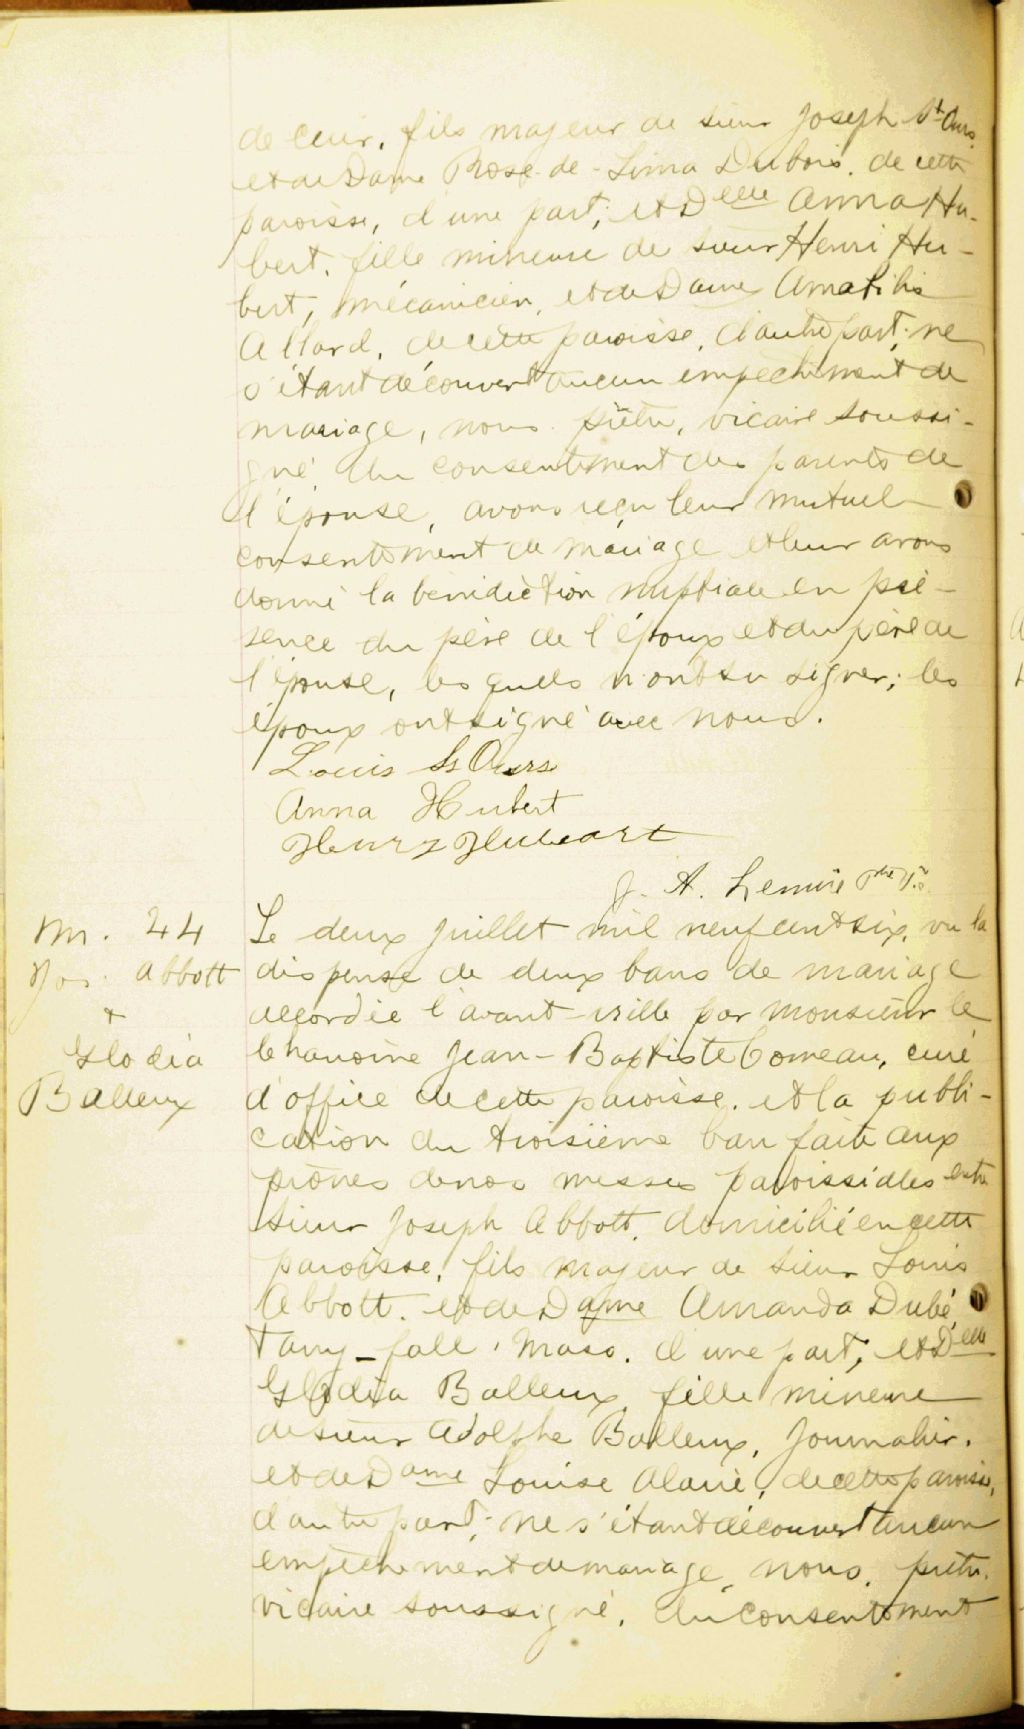 de cuir, fils majeur de sieur Joseph St Ours,
et de Dame Rose-de-Lima Dubois, de cette
paroisse, d'une part; et Delle Anna Hu-
bert, fille mineure de sieur Henri Hu-
bert, mécanicien, et de Dame Amabilis
Allard, de cette paroisse, d'autre part; ne
s'étant découvert aucun empêchement de
mariage, nous prêtre, vicaire soussi-
gné du consentement des parents de
l'épouse, avons reçu leur mutuel
consentement de mariage et leur avons
donné la bénédiction nuptiale en pré-
sence du père de l'époux et du père de
l'épouse, lesquels n'ont su signer; les
époux ont signé avec nous.
Louis St Ours
Anna Hubert
Henry Hubeart
J. A. Lemire Ptre Vic.
M. 44
Jos. Abbott
+
Glodia
Balleux
Le deux juillet mil neuf cent six, vu la
dispense de deux bans de mariage
accordée l'avant-veille par monsieur le
chanoine Jean-Baptiste Comeau, curé
d'office de cette paroisse, et la publi-
cation du troisième ban faite aux
prônes de nos messes paroissiales entre
sieur Joseph Abbott, domicilié en cette
paroisse, fils majeur de sieur Louis
Abbott, et de Dame Amanda Dubé,
fall, Mass. d'une part; et Delle
Glodia Balleux, fille mineure
de sieur Adolphe Balleux, journalier,
et de Dame Louise Alarie, de cette paroisse,
d'autre part; ne s'étant découvert aucun
empêchement de mariage, nous, prêtre,
vicaire soussigné, du consentement